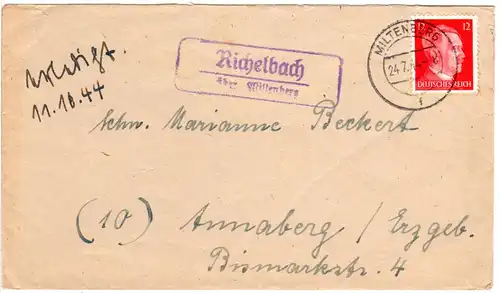 erledigt
11.10.44
Richelbach
über Miltenberg
MILTENBERG
24.7.
12
DEUTSCHES REICH
Schw. Marianne Beckert
(10) Annaberg / Erzgeb.
Bismarkstr. 4